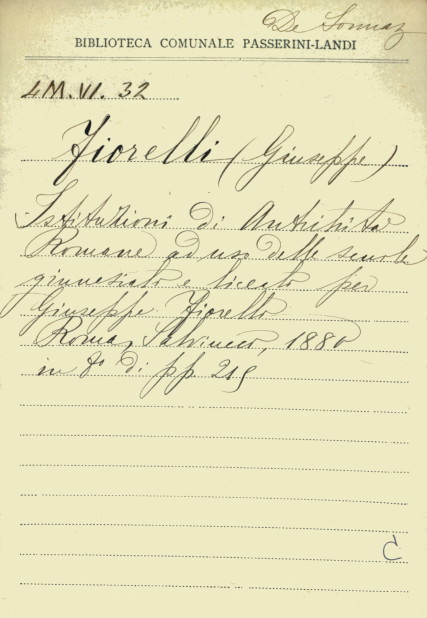 De Sonnaz
BIBLIOTECA COMUNALE PASSERINI-LANDI
4M.VI. 32
Fiorelli (Giuseppe)
Istituzioni di Antichità
Romane ad uso delle scuole
ginnasiali e liceali per
Giuseppe Fiorelli
Roma, Salviucci, 1880
in 8º di pp 215
C